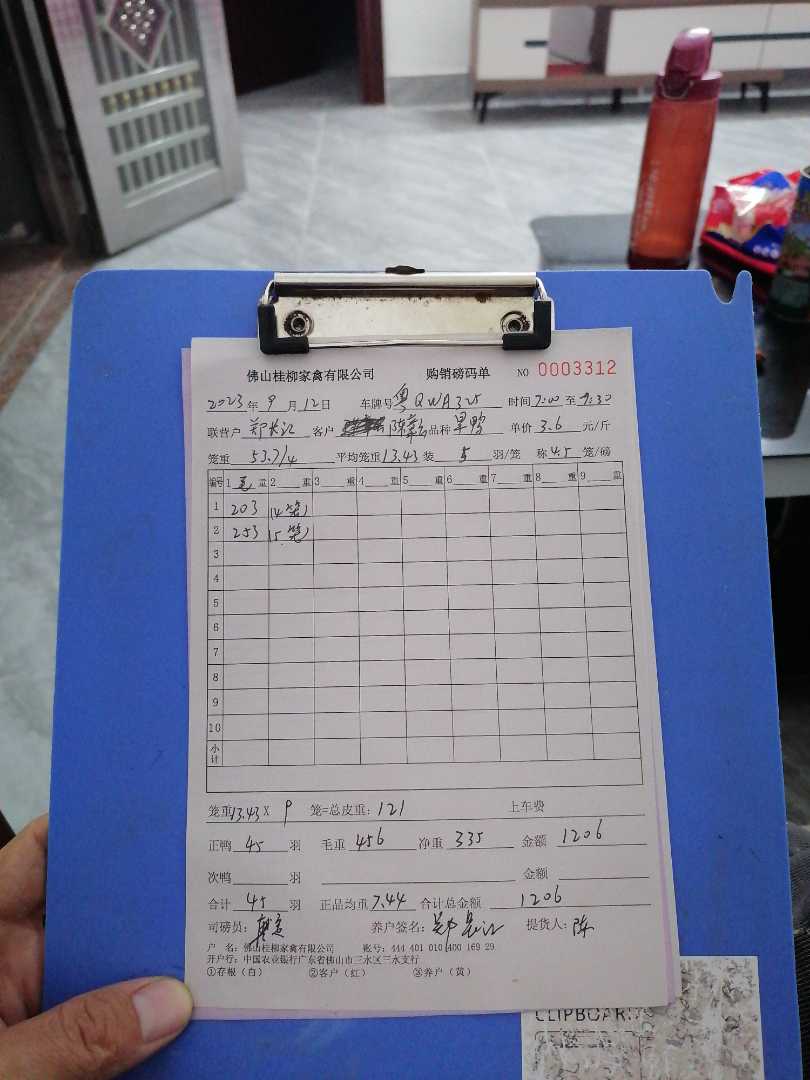 佛山桂柳家禽有限公司 购销磅码单 NO 0003312
2023年9月12日 车牌号粤QWA325 时间7:00至9:30
联营户 郑长江 客户 陈 品种 单价3.6元/斤
笼重53.7/4 平均笼重13.43装5羽/笼 称45笼/磅
编号 1毛重 2重 3重 4重 5重 6重 7重 8重 9重
1 203 (4笼)
2 253 (5笼)
3
4
5
6
7
8
9
10
小计
笼重13.43X9笼=总皮重:121 上车费
正鸭45羽 毛重456 净重335 金额1206
次鸭羽 金额
合计45羽 正品均重7.44 合计总金额1206
司磅员: 养户签名:郑长江 提货人:陈
户 名:佛山桂柳家禽有限公司 账号:444 401 010 400 169 29
开户行:中国农业银行广东省佛山市三水区三水支行
①存根(白) ②客户(红) ③养户(黄)
CLIPBOARD